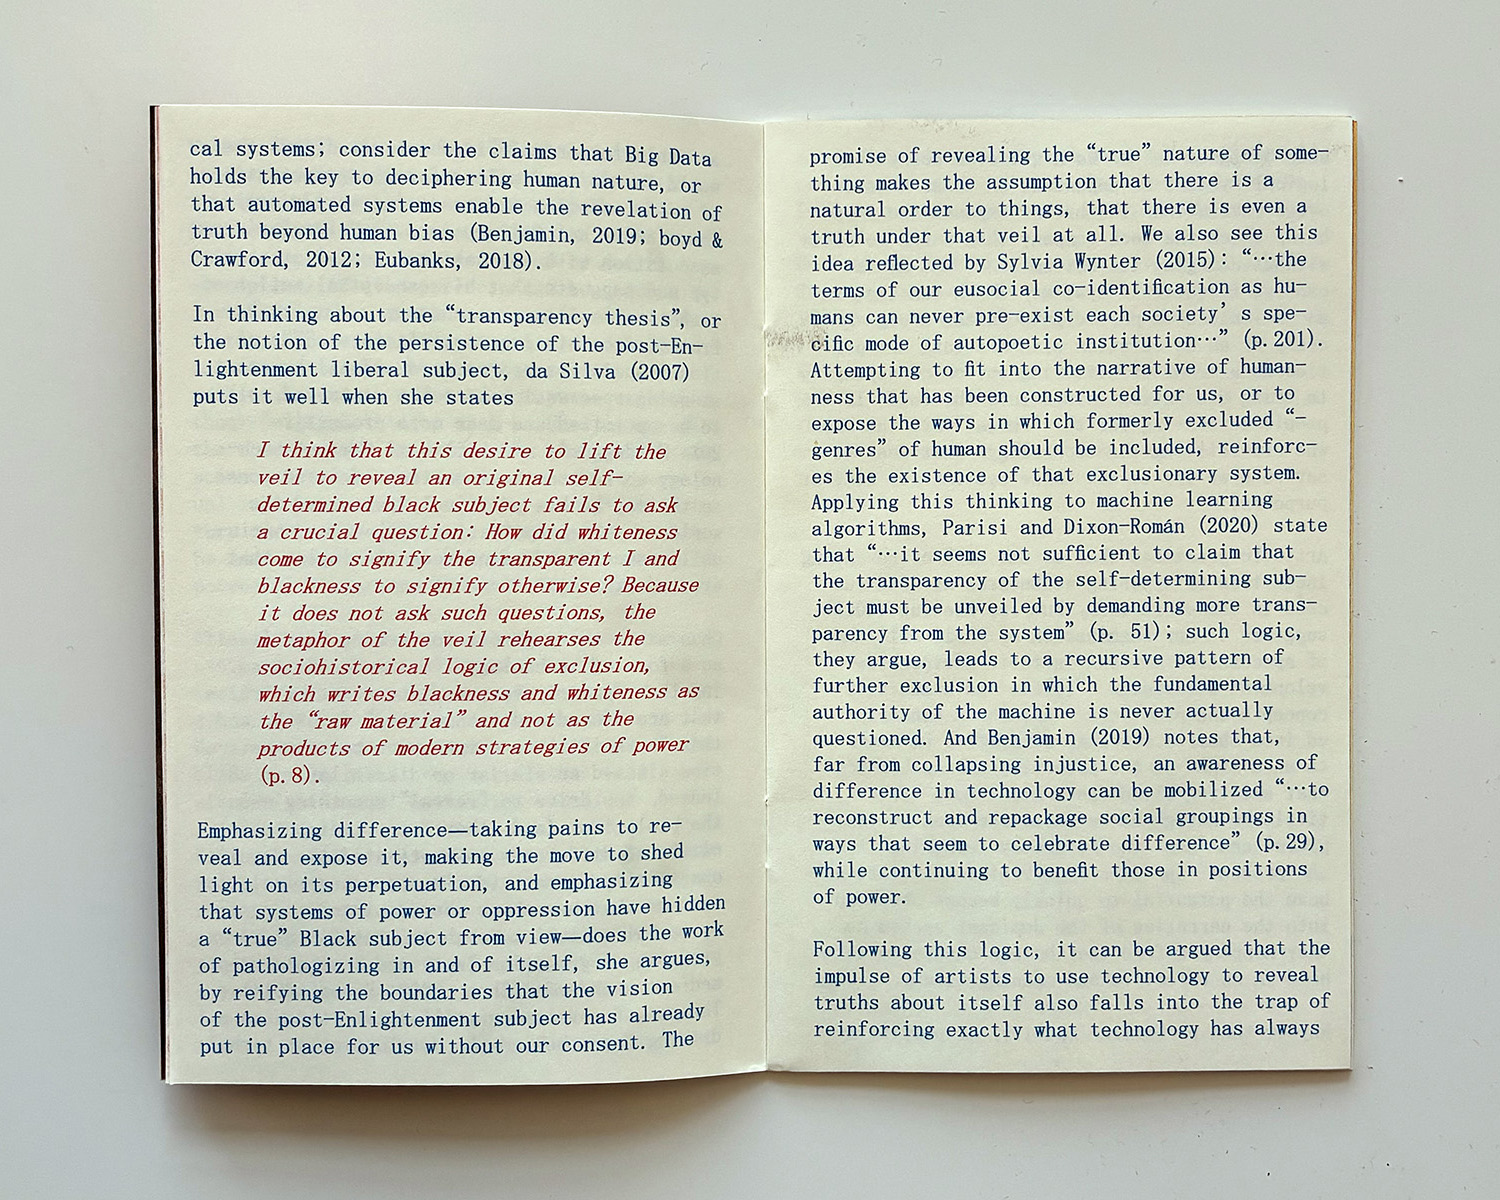 cal systems; consider the claims that Big Data
holds the key to deciphering human nature, or
that automated systems enable the revelation of
truth beyond human bias (Benjamin, 2019; boyd &
Crawford, 2012; Eubanks, 2018).
In thinking about the “transparency thesis”, or
the notion of the persistence of the post-En-
lightenment liberal subject, da Silva (2007)
puts it well when she states
I think that this desire to lift the
veil to reveal an original self-
determined black subject fails to ask
a crucial question: How did whiteness
come to signify the transparent I and
blackness to signify otherwise? Because
it does not ask such questions, the
metaphor of the veil rehearses the
sociohistorical logic of exclusion,
which writes blackness and whiteness as
the “raw material” and not as the
products of modern strategies of power
(p. 8).
Emphasizing difference—taking pains to re-
veal and expose it, making the move to shed
light on its perpetuation, and emphasizing
that systems of power or oppression have hidden
a “true” Black subject from view—does the work
of pathologizing in and of itself, she argues,
by reifying the boundaries that the vision
of the post-Enlightenment subject has already
put in place for us without our consent. The
promise of revealing the “true” nature of some-
thing makes the assumption that there is a
natural order to things, that there is even a
truth under that veil at all. We also see this
idea reflected by Sylvia Wynter (2015): “…the
terms of our eusocial co-identification as hu-
mans can never pre-exist each society’s spe-
cific mode of autopoetic institution…” (p. 201).
Attempting to fit into the narrative of human-
ness that has been constructed for us, or to
expose the ways in which formerly excluded “-
genres” of human should be included, reinforc-
es the existence of that exclusionary system.
Applying this thinking to machine learning
algorithms, Parisi and Dixon-Román (2020) state
that “…it seems not sufficient to claim that
the transparency of the self-determining sub-
ject must be unveiled by demanding more trans-
parency from the system” (p. 51); such logic,
they argue, leads to a recursive pattern of
further exclusion in which the fundamental
authority of the machine is never actually
questioned. And Benjamin (2019) notes that,
far from collapsing injustice, an awareness of
difference in technology can be mobilized “…to
reconstruct and repackage social groupings in
ways that seem to celebrate difference” (p. 29),
while continuing to benefit those in positions
of power.
Following this logic, it can be argued that the
impulse of artists to use technology to reveal
truths about itself also falls into the trap of
reinforcing exactly what technology has always